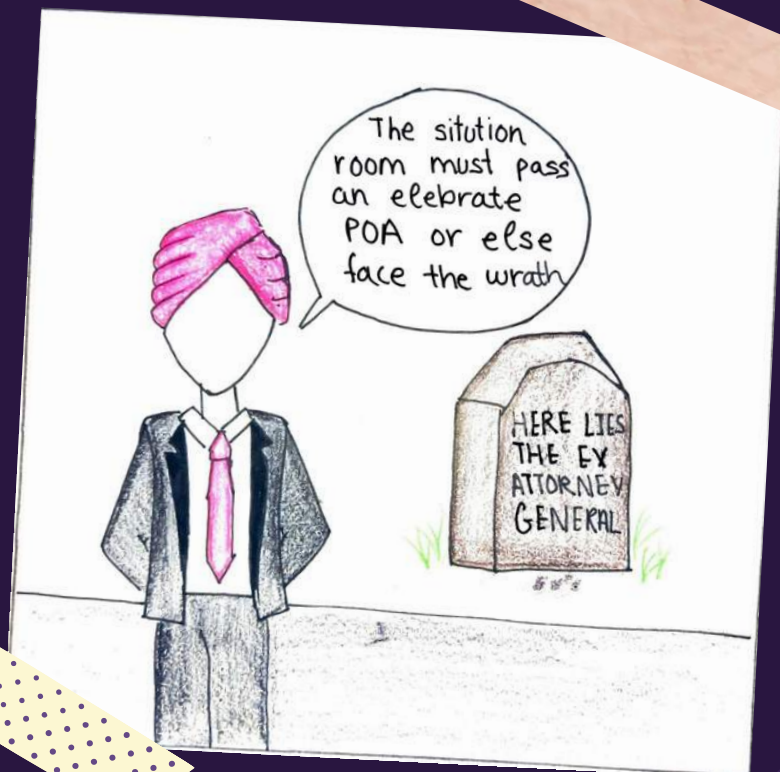 The sitution
room must pass
an elebrate
POA or else
face the wrath
HERE LIES
THE EX
ATTORNEY
GENERAL